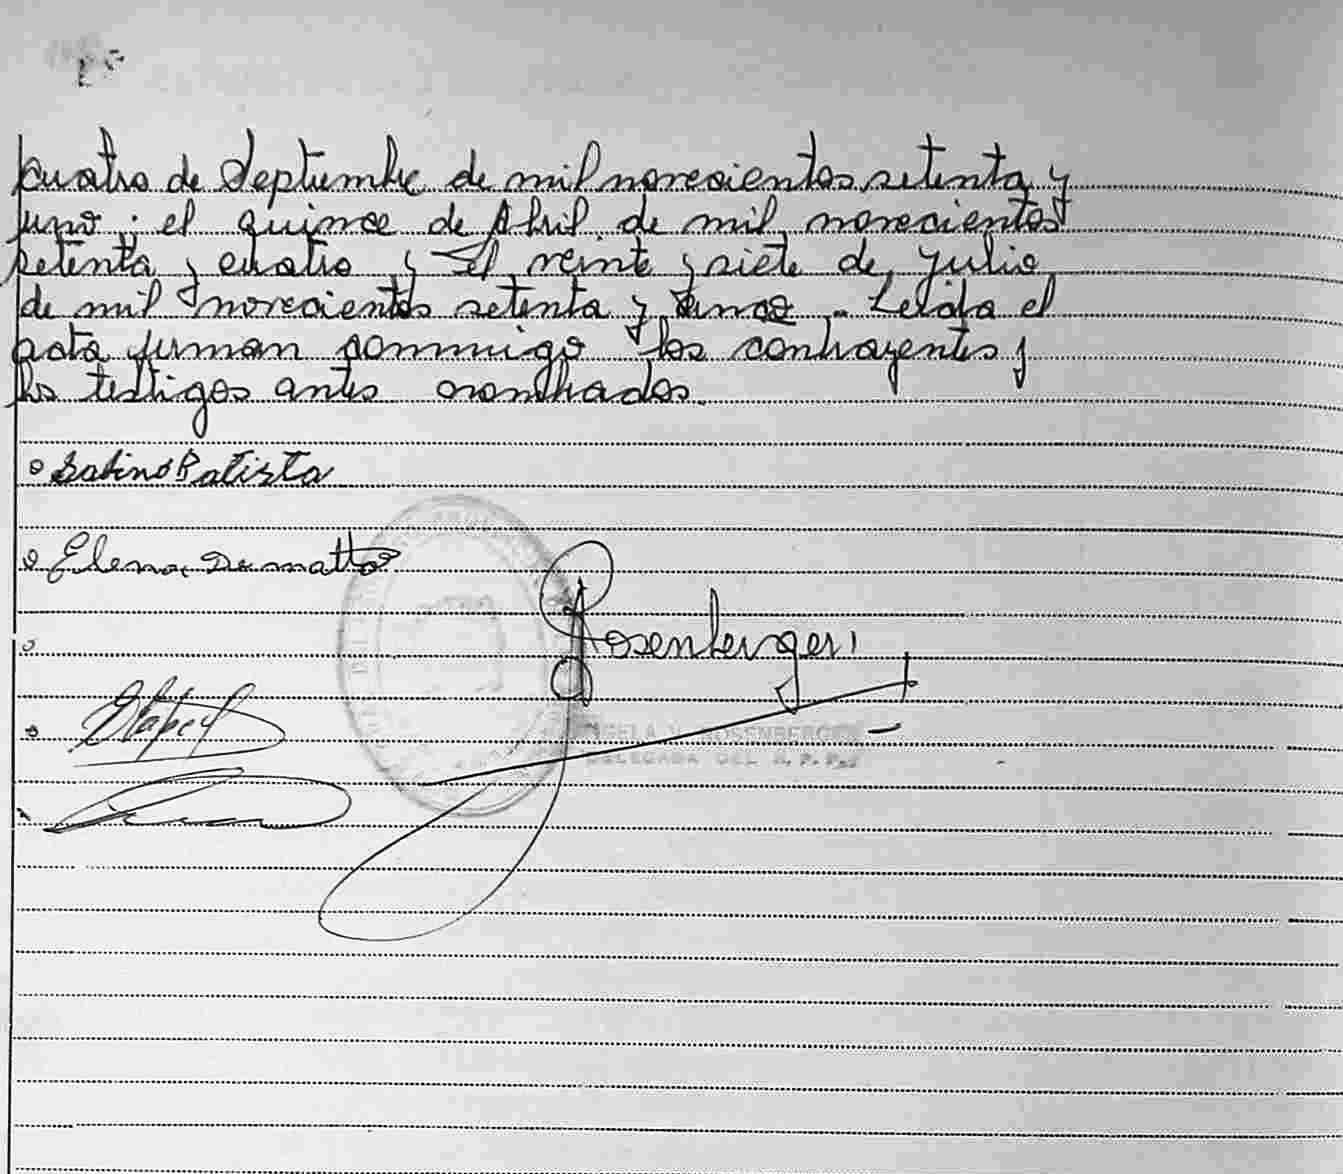 cuatro de Septiembre de mil novecientos setenta y
uno; el quince de Abril de mil novecientos
setenta y cuatro y el veinte y siete de Julio
de mil novecientos setenta y
Leída el
acta firman conmigo los contrayentes y
los testigos antes nombrados.
Sabino Batista
Elena Dematto
Rosenberger
ANGELA V. ROSENBERGER
DELEGADA DEL R. P. P.